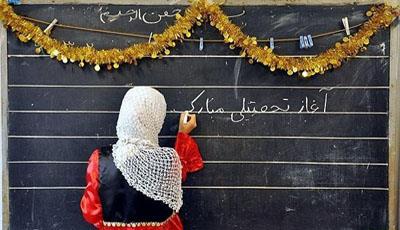 الرحیم
آغاز تحصیلی مبارک